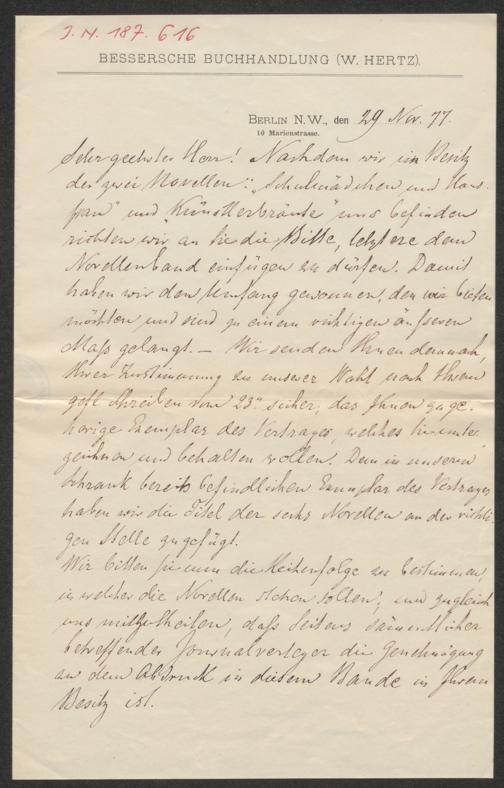 J. N. 187.616
BESSERSCHE BUCHHANDLUNG (W. HERTZ).
BERLIN N.W., den 29 Nov. 77.
10 Marienstrasse.
Sehr geehrter Herr! Nachdem wir im Besitz
der zwei Novellen: „Schulmädchen und Haus-
frau" und „Künstlerbräute" uns befinden
richten wir an Sie die Bitte, letztere dem
Novellenband einfügen zu dürfen. Damit
haben wir den Umfang gewonnen, den wir bieten
möchten, und sind zu einem richtigen äußeren
Maß gelangt. — Wir senden Ihnen demnach,
Ihrer Zustimmung zu unserer Wahl nach Ihrem
gefl. Schreiben vom 23n sicher, das Ihnen zuge-
hörige Exemplar des Vertrages, welches Sie unter
zeichnen und behalten wollen. Dem in unserm
Schrank bereits befindlichen Exemplar des Vertrages
haben wir die Titel der sechs Novellen an der richti-
gen Stelle zugefügt.
Wir bitten Sie nun die Reihenfolge zu bestimmen,
in welcher die Novellen stehen sollen, und zugleich
uns mitzutheilen, daß Seitens sämmtlicher
betreffender Journalverleger die Genehmigung
zu dem Abdruck in diesem Bande in Ihrem
Besitz ist.